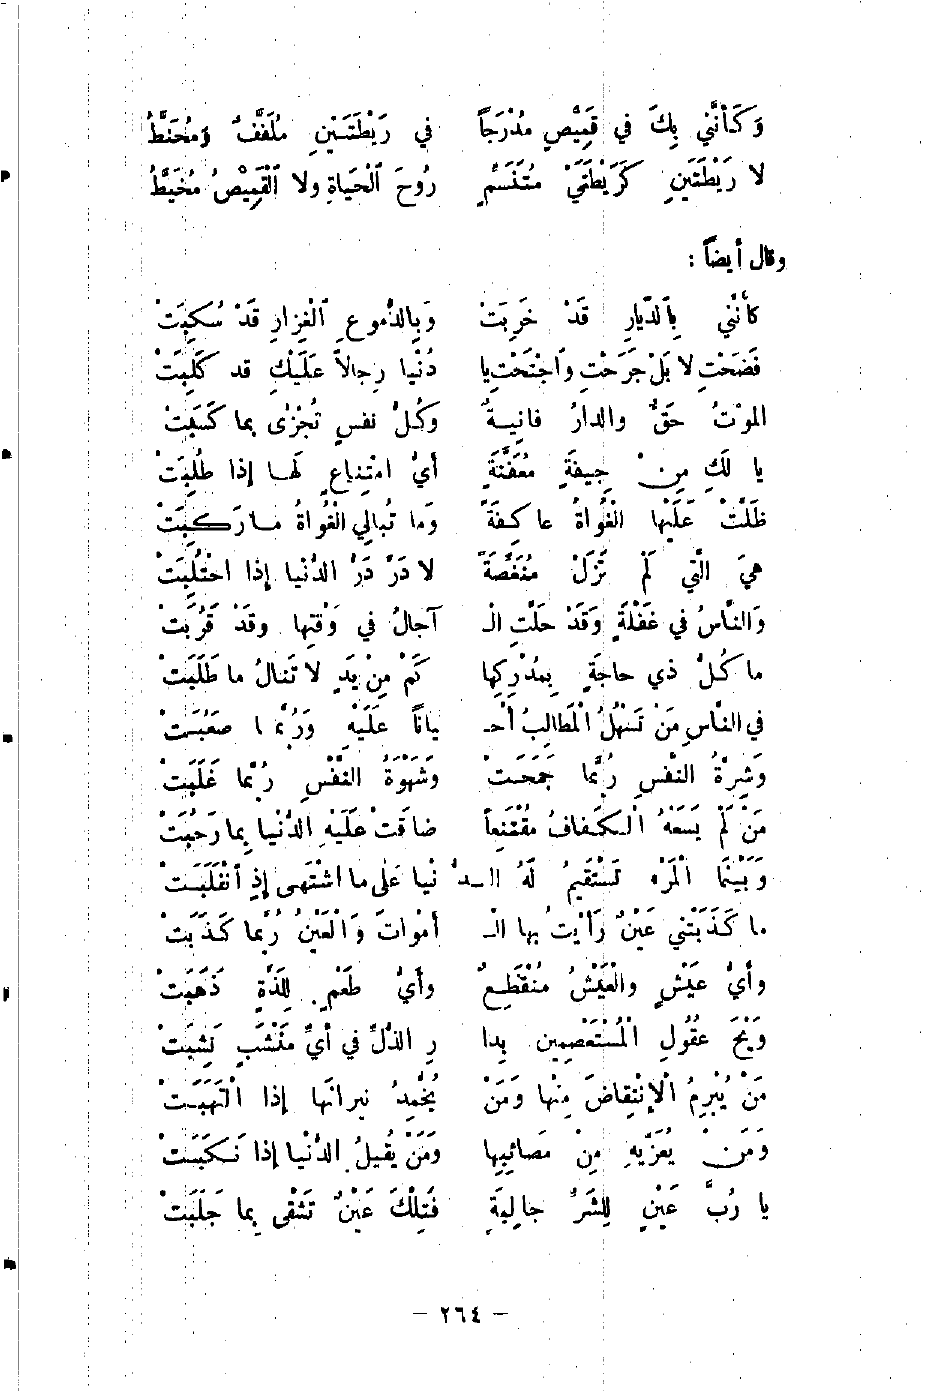 وَكَأَنَّنِي بِكَ فِي قَمِيْصٍ مُدْرَجَاً في رَيْطَتَيْنِ مُلَفَّفٌ وَمُحَنَّطُ
لا رَيْطَتَينِ كَرَيْطَتَيْ مُتَنَسِّمٍ رُوحَ ٱلْحَيَاةِ ولا ٱلْقَمِيْصُ مُخَيَّطُ
وقال أيضاً :
كأنَّني بِالدِّيارِ قَدْ خَرِبَتْ وَبِالدُّموعِ ٱلْغِزارِ قَدْ سُكِبَتْ
فَضَحْتِ لا بَلْ جَرَحْتِ وَاجْتَحْتِ يا دُنْيا رِجالاً عَلَيْكِ قد كَلِبَتْ
الموْتُ حَقٌّ والدارُ فانِيـةٌ وَكُلُّ نفسٍ تُجْزَى بما كَسَبَتْ
يا لَكِ مِنْ جِيفَةٍ مُعَفَّنَةٍ أيُّ امْتِناعٍ لَهـا إذا طُلِبَتْ
ظَلَّتْ عَلَيْها الْغُواةُ عاكِفَةً وَما تُبالِي الْغُواةُ مـا رَكِبَتْ
هيَ الَّتي لَمْ تَزَلْ مُنَغَّصَةً لا دَرَّ دَرُّ الدُّنيا إذا احْتُلِبَتْ
وَالنَّاسُ في غَفْلَةٍ وَقَدْ حَلَّتِ الْـ آجالُ في وَقْتِها وقَدْ قَرُبَتْ
ما كُلُّ ذي حاجَةٍ بِمُدْرِكِها كَمْ مِنْ يَدٍ لا تَنالُ ما طَلَبَتْ
في النَّاسِ مَنْ تَسْهُلُ الْمَطالِبُ أَحْـ ياناً عَلَيْهِ وَرُبَّما صَعُبَتْ
وَشِرَّةُ النَّفْسِ رُبَّما جَمَحَتْ وَشَهْوَةُ النَّفْسِ رُبَّما غَلَبَتْ
مَنْ لَمْ يَسَعْهُ الْكَفافُ مُقْتَنِعاً ضاقَتْ عَلَيْهِ الدُّنْيا بِما رَحُبَتْ
وَبَيْنَما الْمَرْءُ تَسْتَقِيمُ لَهُ الـدُّ نْيا عَلى ما اشْتَهى إذِ ٱنْقَلَبَتْ
ما كَذَبَتْني عَيْنٌ رَأَيْتُ بها الْـ أمْواتَ وَالْعَيْنُ رُبَّما كَذَبَتْ
وأيُّ عَيْشٍ والْعَيْشُ مُنْقَطِعٌ وأيُّ طَعْمٍ لِلَذَّةٍ ذَهَبَتْ
وَيْحَ عقُولِ الْمُسْتَعْصِمِين بِدا رِ الذُّلِّ في أيِّ مَنْشَبٍ نَشِبَتْ
مَنْ يُبْرِمُ الْاِنْتِقاضَ مِنْها وَمَنْ يُخْمِدُ نيرانَها إذا الْتَهَبَتْ
وَمَنْ يُعَزِّيهِ مِنْ مَصائِبِها وَمَنْ يُقيلُ الدُّنْيا إذا نَكَبَتْ
يا رُبَّ عَيْنٍ لِلشَّرِّ جالِبَةٍ فَتِلْكَ عَيْنٌ تَشْقى بِما جَلَبَتْ
– ٢٦٤ –